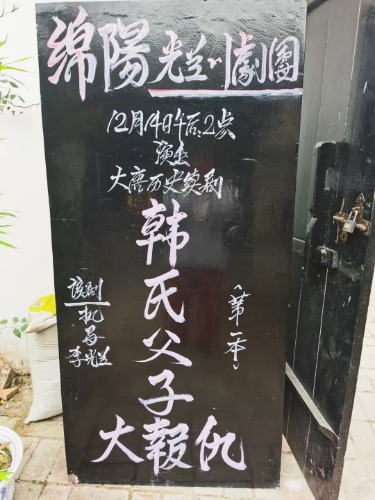 绵陽光兰川劇團
12月14日午后2点
演出
大唐历史续剧
韩氏父子
大報仇
《第一本》
该剧
机马
李光兰